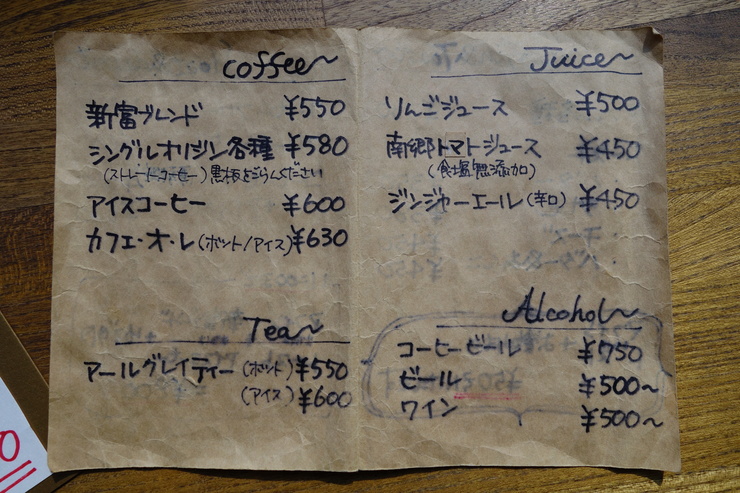 Coffee~
新富ブレンド ¥550
シングルオリジン各種 ¥580
(ストレートコーヒー)黒板をごらんください
アイスコーヒー ¥600
カフェ・オ・レ(ホット/アイス) ¥630
Tea~
アールグレイティー(ホット) ¥550
(アイス) ¥600
Juice~
りんごジュース ¥500
南郷トマトジュース ¥450
(食塩無添加)
ジンジャーエール(辛口) ¥450
Alcohol~
コーヒービール ¥750
ビール ¥500~
ワイン ¥500~